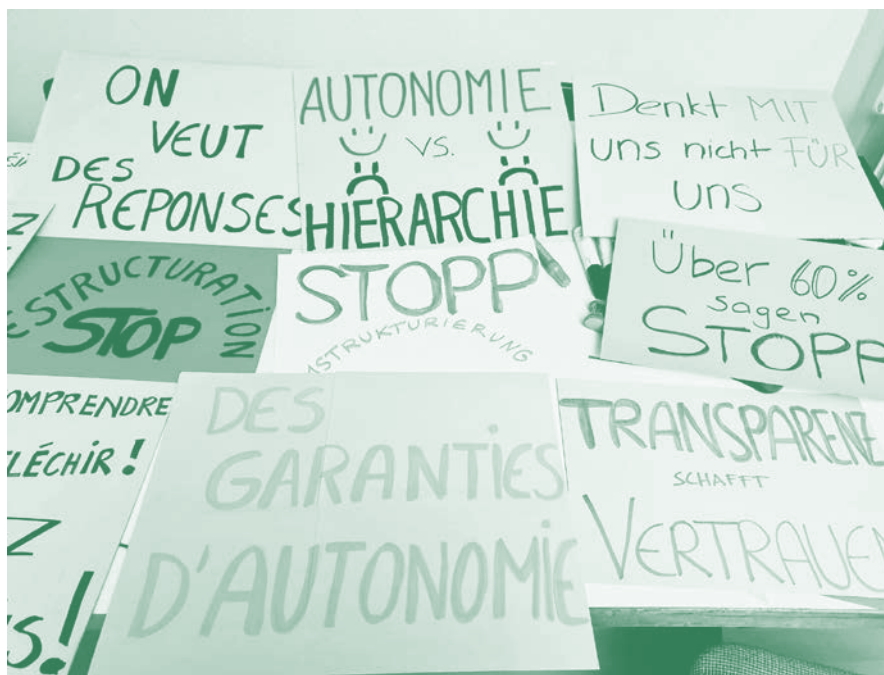 ON
VEUT
DES
REPONSES
AUTONOMIE
VS.
HIERARCHIE
Denkt MIT
uns nicht FÜR
uns
ESTRUCTURATION
STOP
STOPP
STRUKTURIERUNG
Über 60%
sagen
STOPP
OMPRENDRE
LÉCHIR!
Z
S!
DES
GARANTIES
D'AUTONOMIE
TRANSPARENZ
SCHAFFT
VERTRAUEN